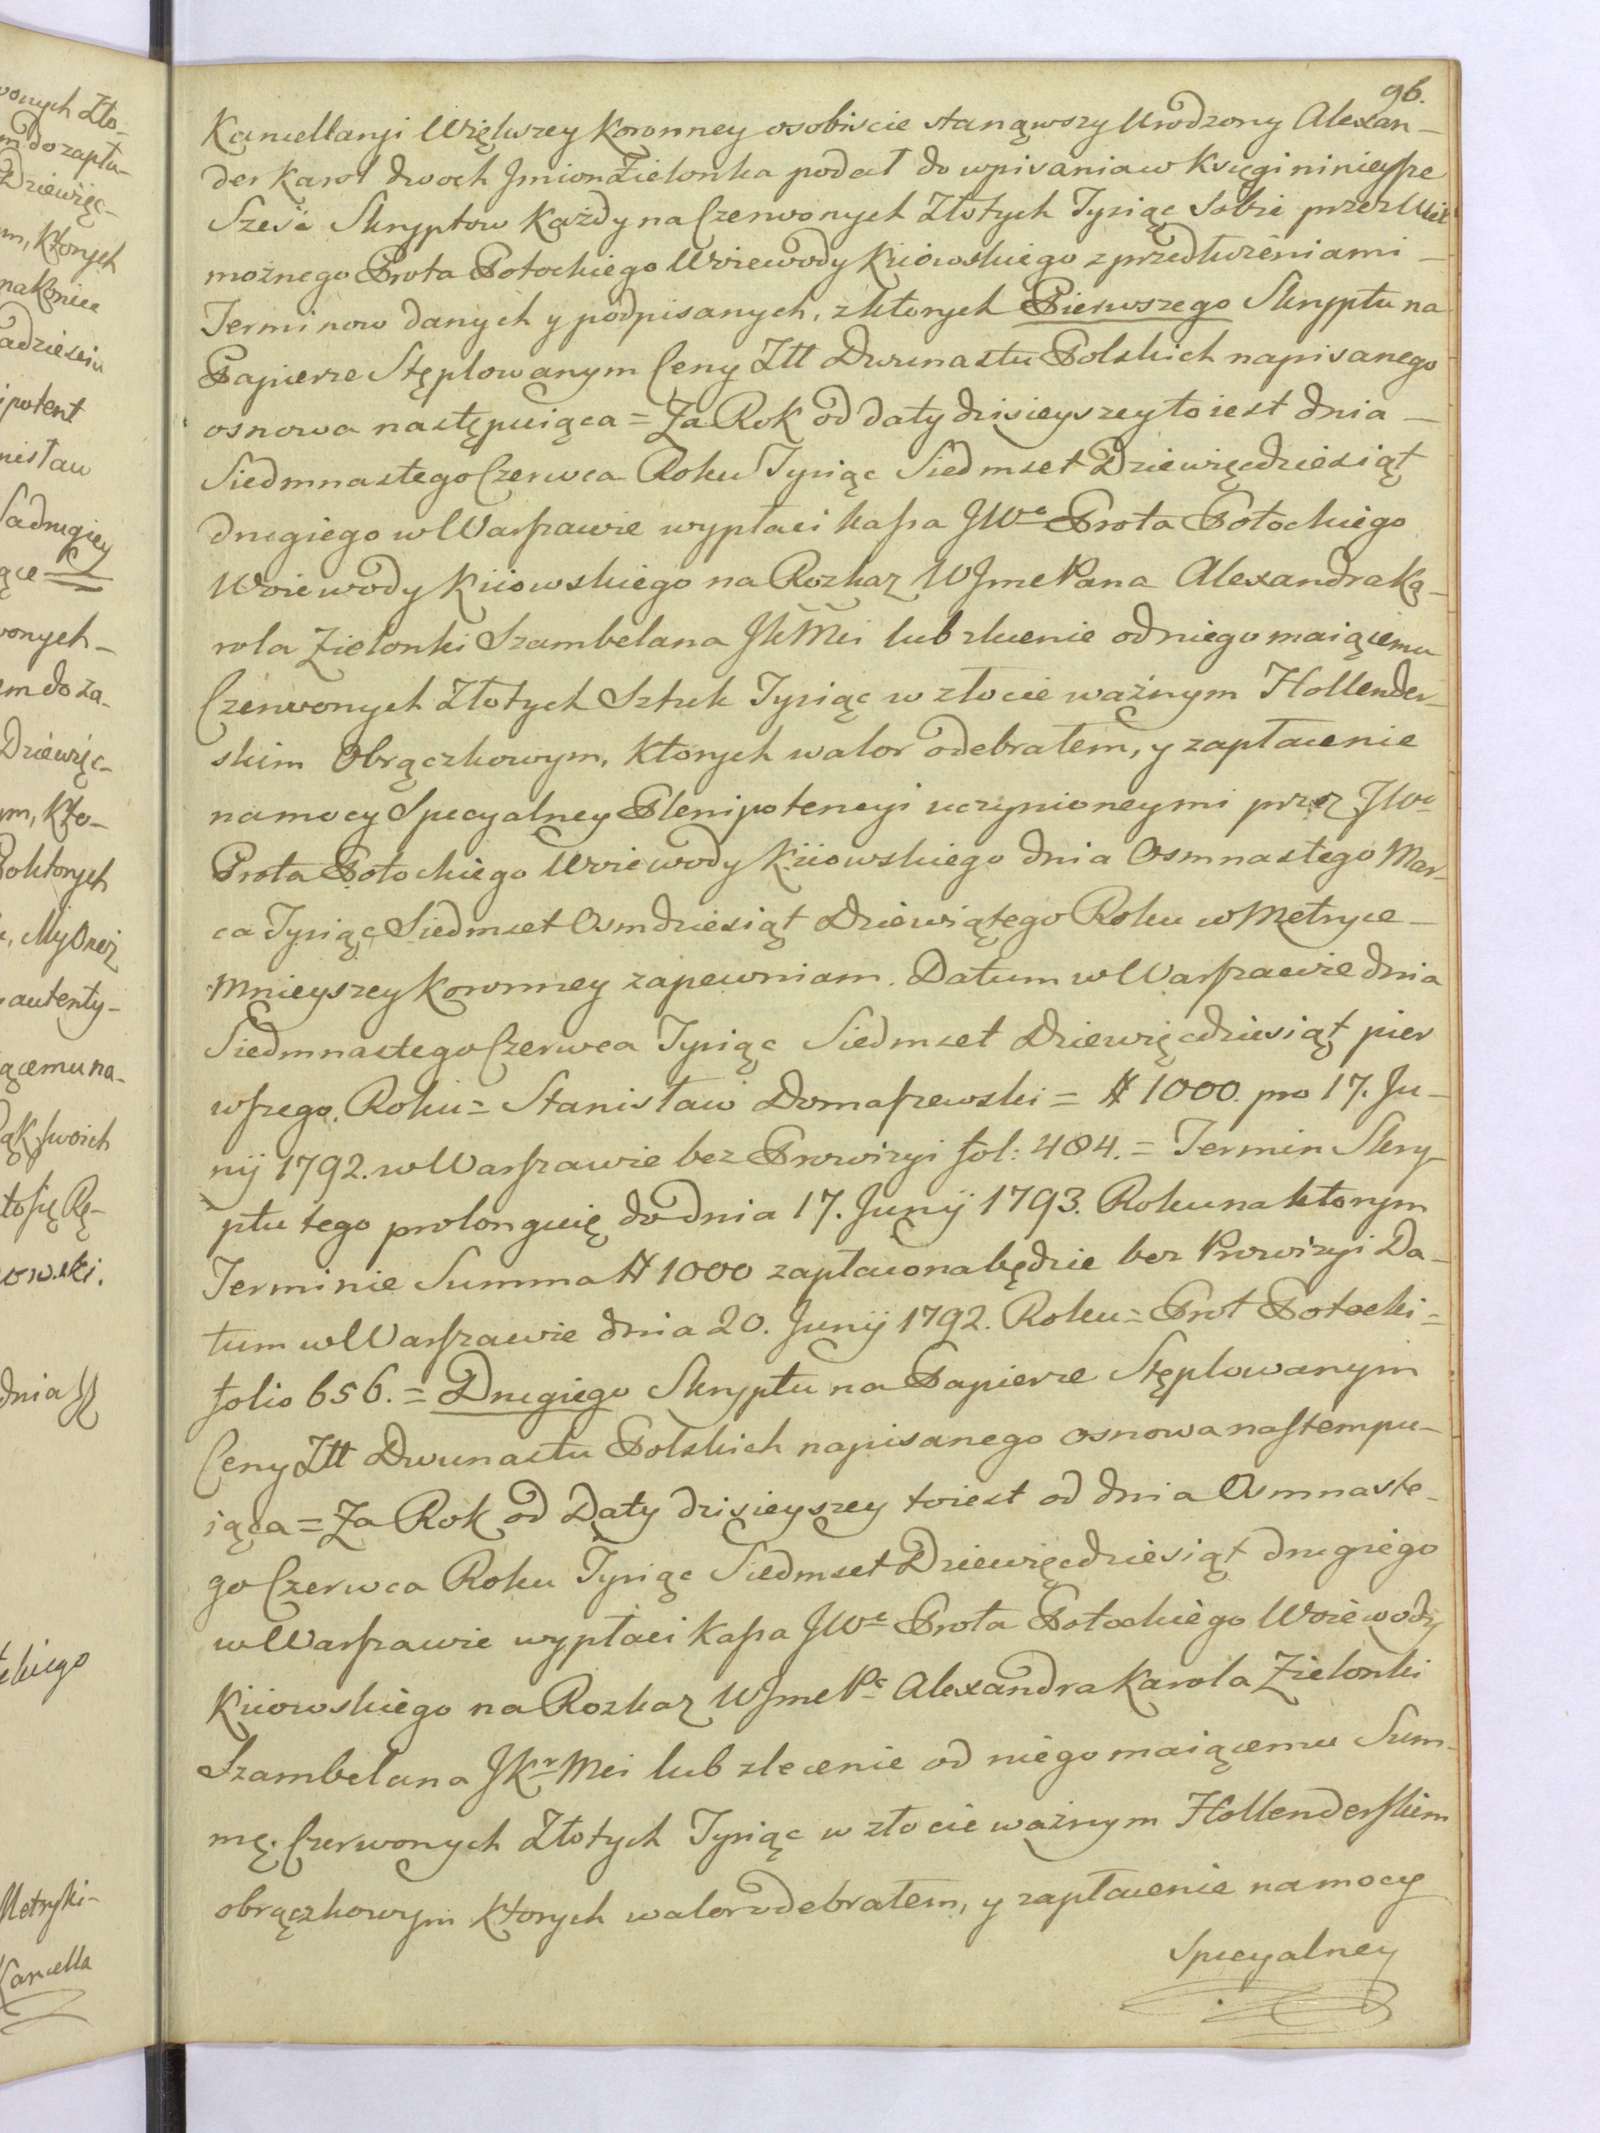 96.
Kancellaryi Większey Koronney osobiscie stanąwszy Urodzony Alexan-
der Karol dwoch Jmion Zielonka podał do wpisania w Księgi ninieysze
Sześć Skryptow Każdy na Czerwonych Złotych Tysiąc sobie przez Wiel
możnego Prota Potockiego Woiewody Kiiowskiego z przedłużeniami -
Terminow danych y podpisanych, z ktorych Pierwszego Skryptu na
Papierze Stęplowanym Ceny Ztt Dwunastu Polskich napisanego
osnowa następuiąca = Za Rok od daty dzisieyszey to iest dnia -
Siedmnastego Czerwca Roku Tysiąc Siedmset Dziewięcdziesiąt
drugiego w Warszawie wypłaci kassa JWo Prota Potockiego
Woiewody Kiiowskiego na Rozkaz WJme Pana Alexandra Ka-
rola Zielonki Szambelana JKMci lub zlecenie od niego maiącemu
Czerwonych Złotych Sztuk Tysiąc w złocie ważnym Hollender-
skim Obrączkowym, Ktorych walor odebrałem, y zapłacenie
na mocy Specyalney Plenipotencyi uczynioney mi przez JWo
Prota Potockiego Woiewody Kiiowskiego dnia Osmnastego Mar-
ca Tysiąc Siedmset Osmdziesiąt Dziewiątego Roku w Metryce -
Mnieyszey Koronney zapewniam. Datum w Warszawie dnia
Siedmnastego Czerwca Tysiąc Siedmset Dziewięcdziesiąt pier
wszego. Roku = Stanisław Domaszewski = # 1000. pro 17. Ju-
nij 1792. w Warszawie bez Prowizyi fol: 484. = Termin Skry-
ptu tego prolonguię do dnia 17. Junij 1793. Roku na ktorym
Terminie Summa # 1000 zapłacona będzie bez Prowizyi Da-
tum w Warszawie dnia 20. Junij 1792. Roku = Prot Potocki =
folio 656. = Drugiego Skryptu na Papierze Stęplowanym
Ceny Ztt Dwunastu Polskich napisanego osnowa nastempu-
iąca = Za Rok od Daty dzisieyszey to iest od dnia Osmnaste-
go Czerwca Roku Tysiąc Siedmset Dziewięcdziesiąt drugiego
w Warszawie wypłaci kassa JWo Prota Potockiego Woiewody
Kiiowskiego na Rozkaz WJme Pa Alexandra Karola Zielonki
Szambelana JKr Mci lub zlecenie od niego maiącemu Sum-
mę. Czerwonych Złotych Tysiąc w złocie ważnym Hollenderskim
obrączkowym Ktorych walor odebrałem, y zapłacenie na mocy
Specyalney